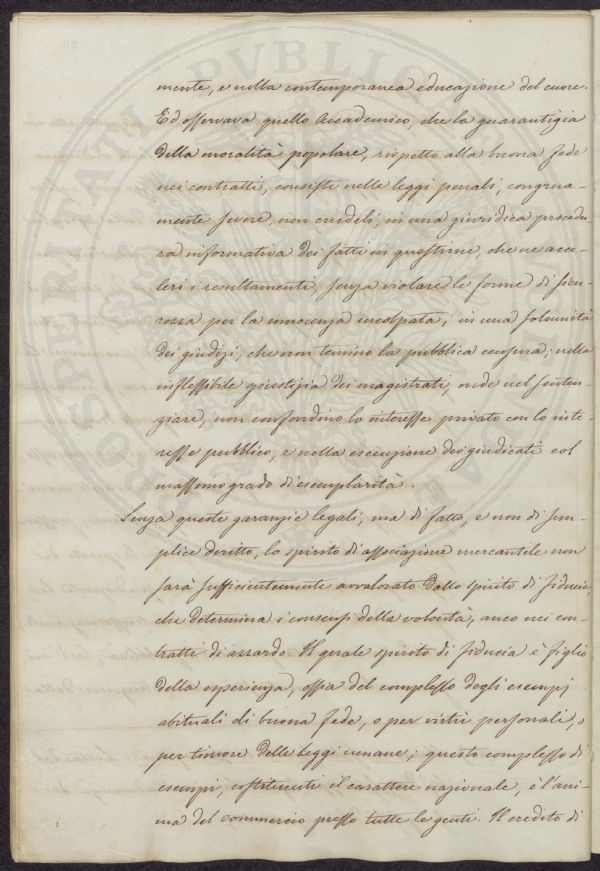 mente, e nella contemporanea educazione del cuore.
Ed osservava quello Accademico, che la guarantigia
della moralità popolare, rispetto alla buona fede
nei contratti, consiste nelle leggi penali, congrua-
mente severe, non crudeli; in una giuridica procedu-
ra informativa dei fatti in questione, che ne acce-
leri i resultamenti, senza violare le forme di sicu-
rezza per la innocenza incolpata; in una solennità
dei giudizi, che non temino la pubblica censura; nella
inflessibile giustizia dei magistrati, onde nel senten-
ziare, non confondino lo interesse privato con lo inte-
resse pubblico, e nella esecuzione dei giudicati col
massimo grado di esemplarità.
Senza queste garanzie legali, ma di fatto, e non di sem-
plice diritto, lo spirito di associazione mercantile non
sarà sufficientemente avvalorato dallo spirito di fiducia,
che determina i consensi della volontà, anco nei con-
tratti di azzardo. Il quale spirito di fiducia è figlio
della esperienza, ossia del complesso degli esempj
abituali di buona fede, o per virtù personali, o
per timore delle leggi umane; questo complesso di
esempj, costituenti il carattere nazionale, è l'ani-
ma del commercio presso tutte le genti. Il credito di